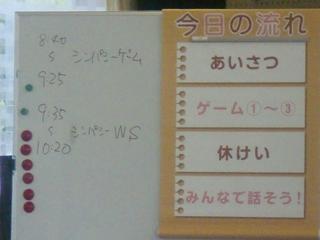 8:40
～ シンパシーゲーム
9:25
9:35
～ シンパシーWS
10:20
今日の流れ
あいさつ
ゲーム①～③
休けい
みんなで話そう!